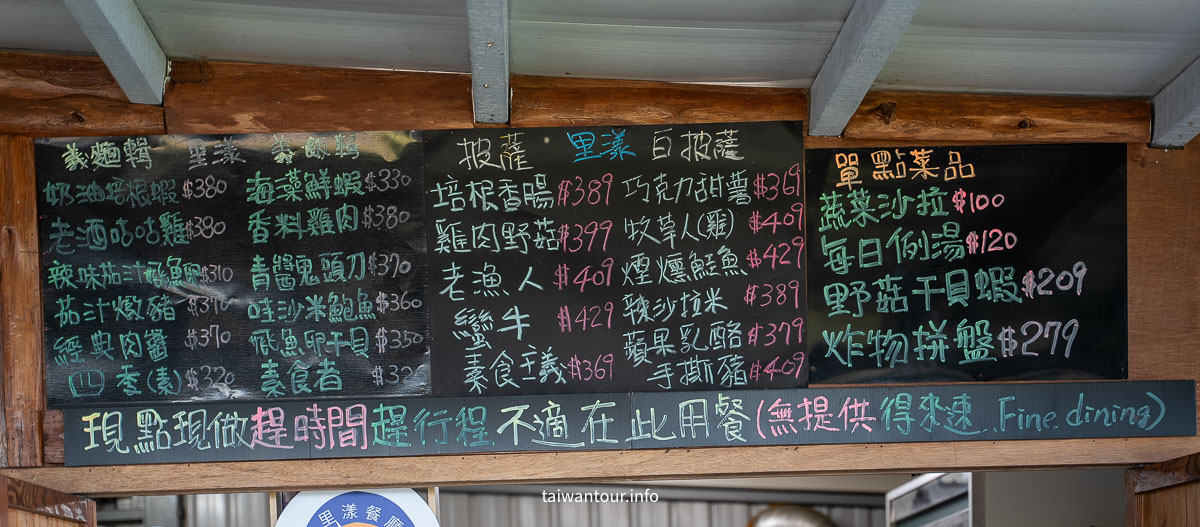 義麵輯 里漾 義飯輯
奶油培根蝦 $380
老酒咕咕雞 $380
辣味茄汁 $310
茄汁燉豬 $340
經典肉醬 $370
四季(素) $320
海藻鮮蝦 $330
香料雞肉 $380
青醬鬼頭刀 $370
哇沙米鮑魚 $360
飛魚卵干貝 $350
素食者 $320
披薩 里漾 白披薩
培根香腸 $389
雞肉野菇 $399
老漁人 $409
蠻牛 $429
素食主義 $369
巧克力甜薯 $369
牧草人(雞) $409
煙燻鯷魚 $429
辣沙拉米 $389
蘋果乳酪 $379
手撕豬 $409
單點菜品
蔬菜沙拉 $100
每日例湯 $120
野菇干貝蝦 $209
炸物拼盤 $279
現點現做趕時間趕行程不適在此用餐(無提供得來速..Fine dining)
里漾餐廳
taiwantour.info